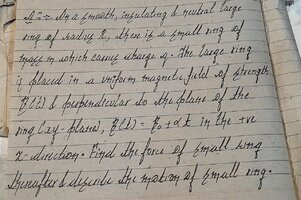 In a smooth, insulating & neutral large
ring of radius R, there is a small ring of
mass m which carries charge q. The large ring
is placed in a uniform magnetic field of strength
B(t) & perpendicular to the plane of the
ring (xy-plane), B(t) = B₀ + αt in the +ve
z-direction. Find the force of small ring
thereafter & describe the motion of small ring.